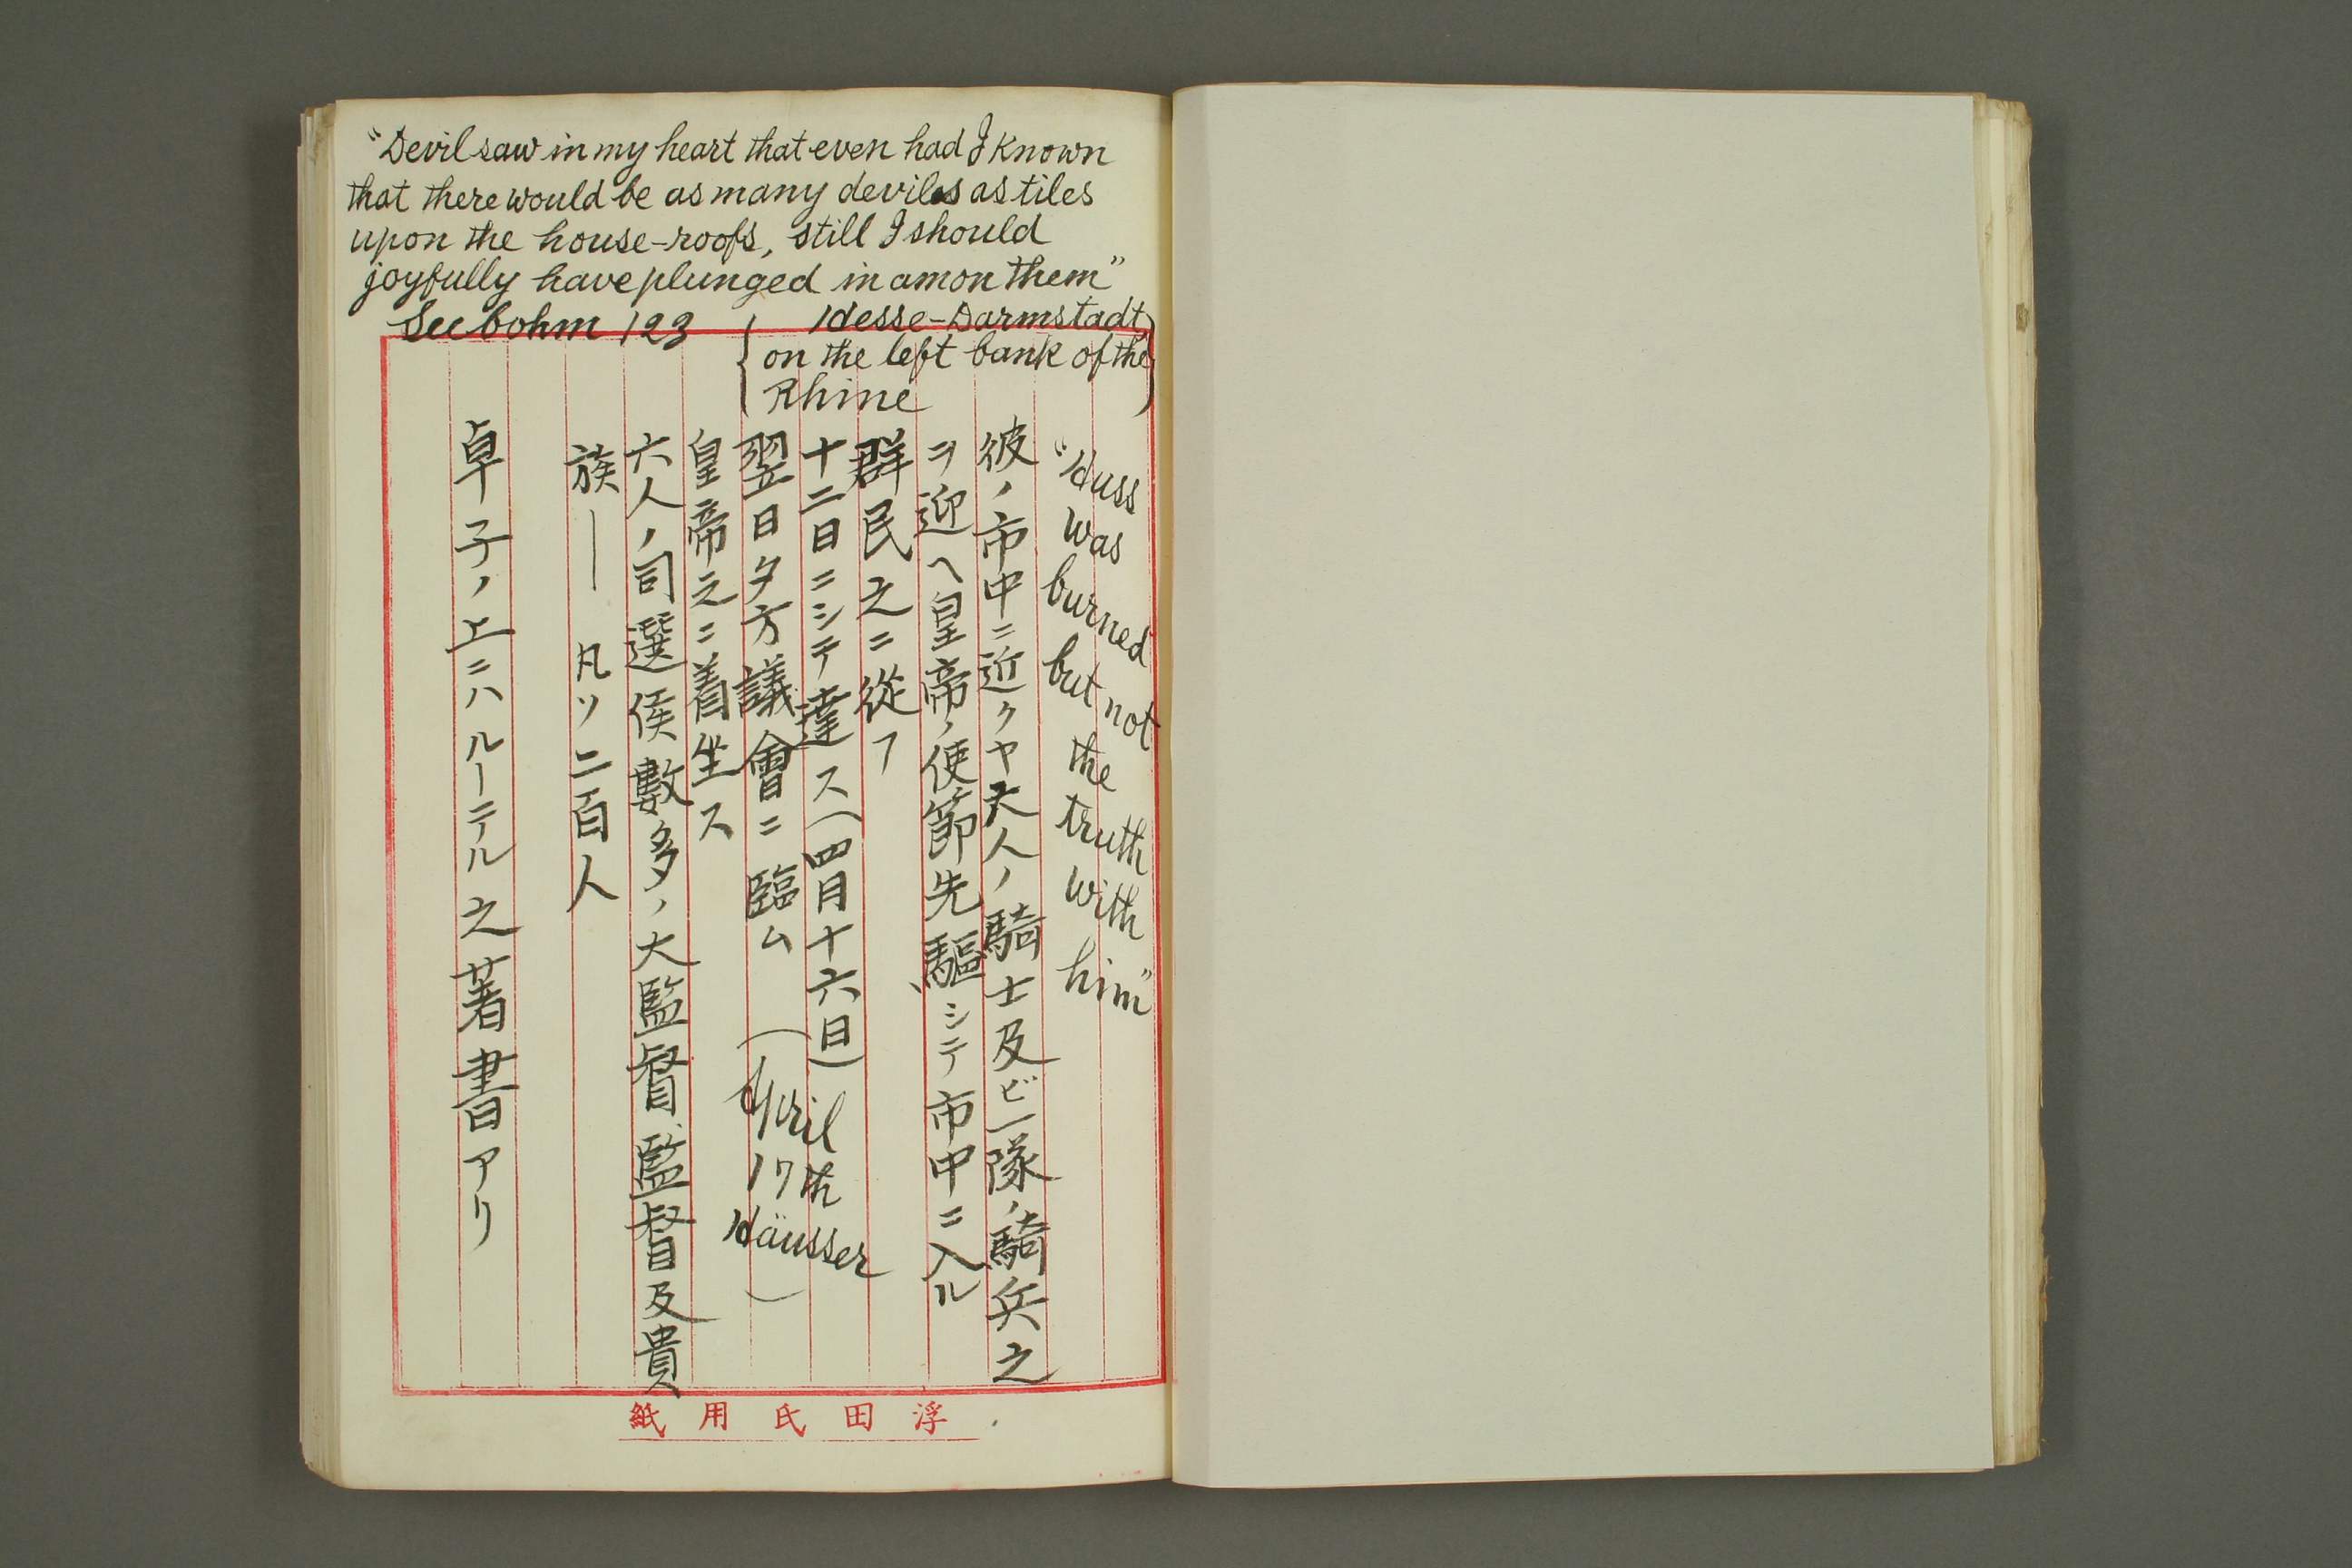 "Devil saw in my heart that even had I known
that there would be as many devils as tiles
upon the house-roofs, still I should
joyfully have plunged in amon them"
Seebohm 123
Hesse-Darmstadt
on the left bank of the
Rhine
"Huss
was
burned
but not
the
truth
with
him"
彼ノ市中ニ近クヤ人ノ騎士及ビ一隊ノ騎兵之
ヲ迎ヘ皇帝ノ使節先驅シテ市中ニ入ル
群民之ニ從フ
十二日ニシテ達ス(四月十六日)
翌日夕方議會ニ臨ム (April
17th
Häusser)
皇帝之ニ着坐ス
六人ノ司選侯數多ノ大監督、監督及貴
族— 凡ソ二百人
卓子ノ上ニハルーテル之著書アリ
浮田氏用紙